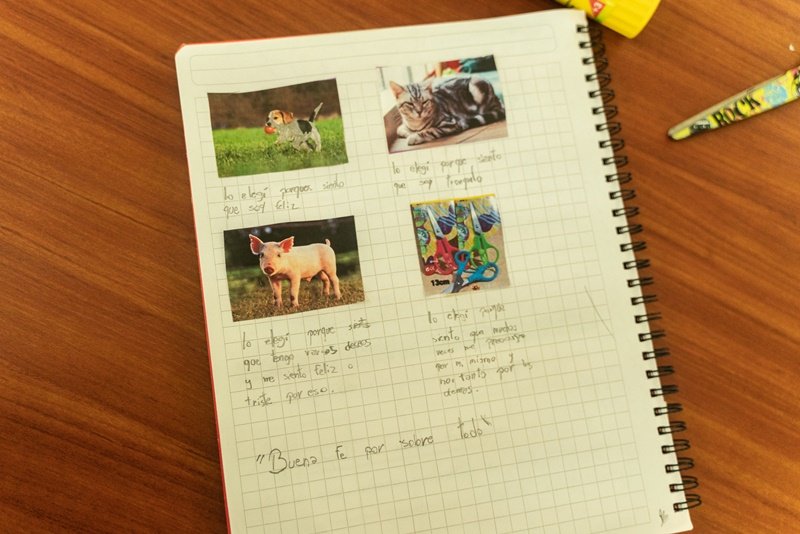 lo elegí porques siento
que soy feliz
lo elegí porque siento
que soy tranquilo
lo elegí porque siento
que tengo varios deseos
y me siento feliz o
triste por eso.
lo elegí porque
siento que muchas
veces me preocupo
por mi mismo y
no tanto por los
demas.
13cm
"Buena Fe por sobre todo"
ROCK